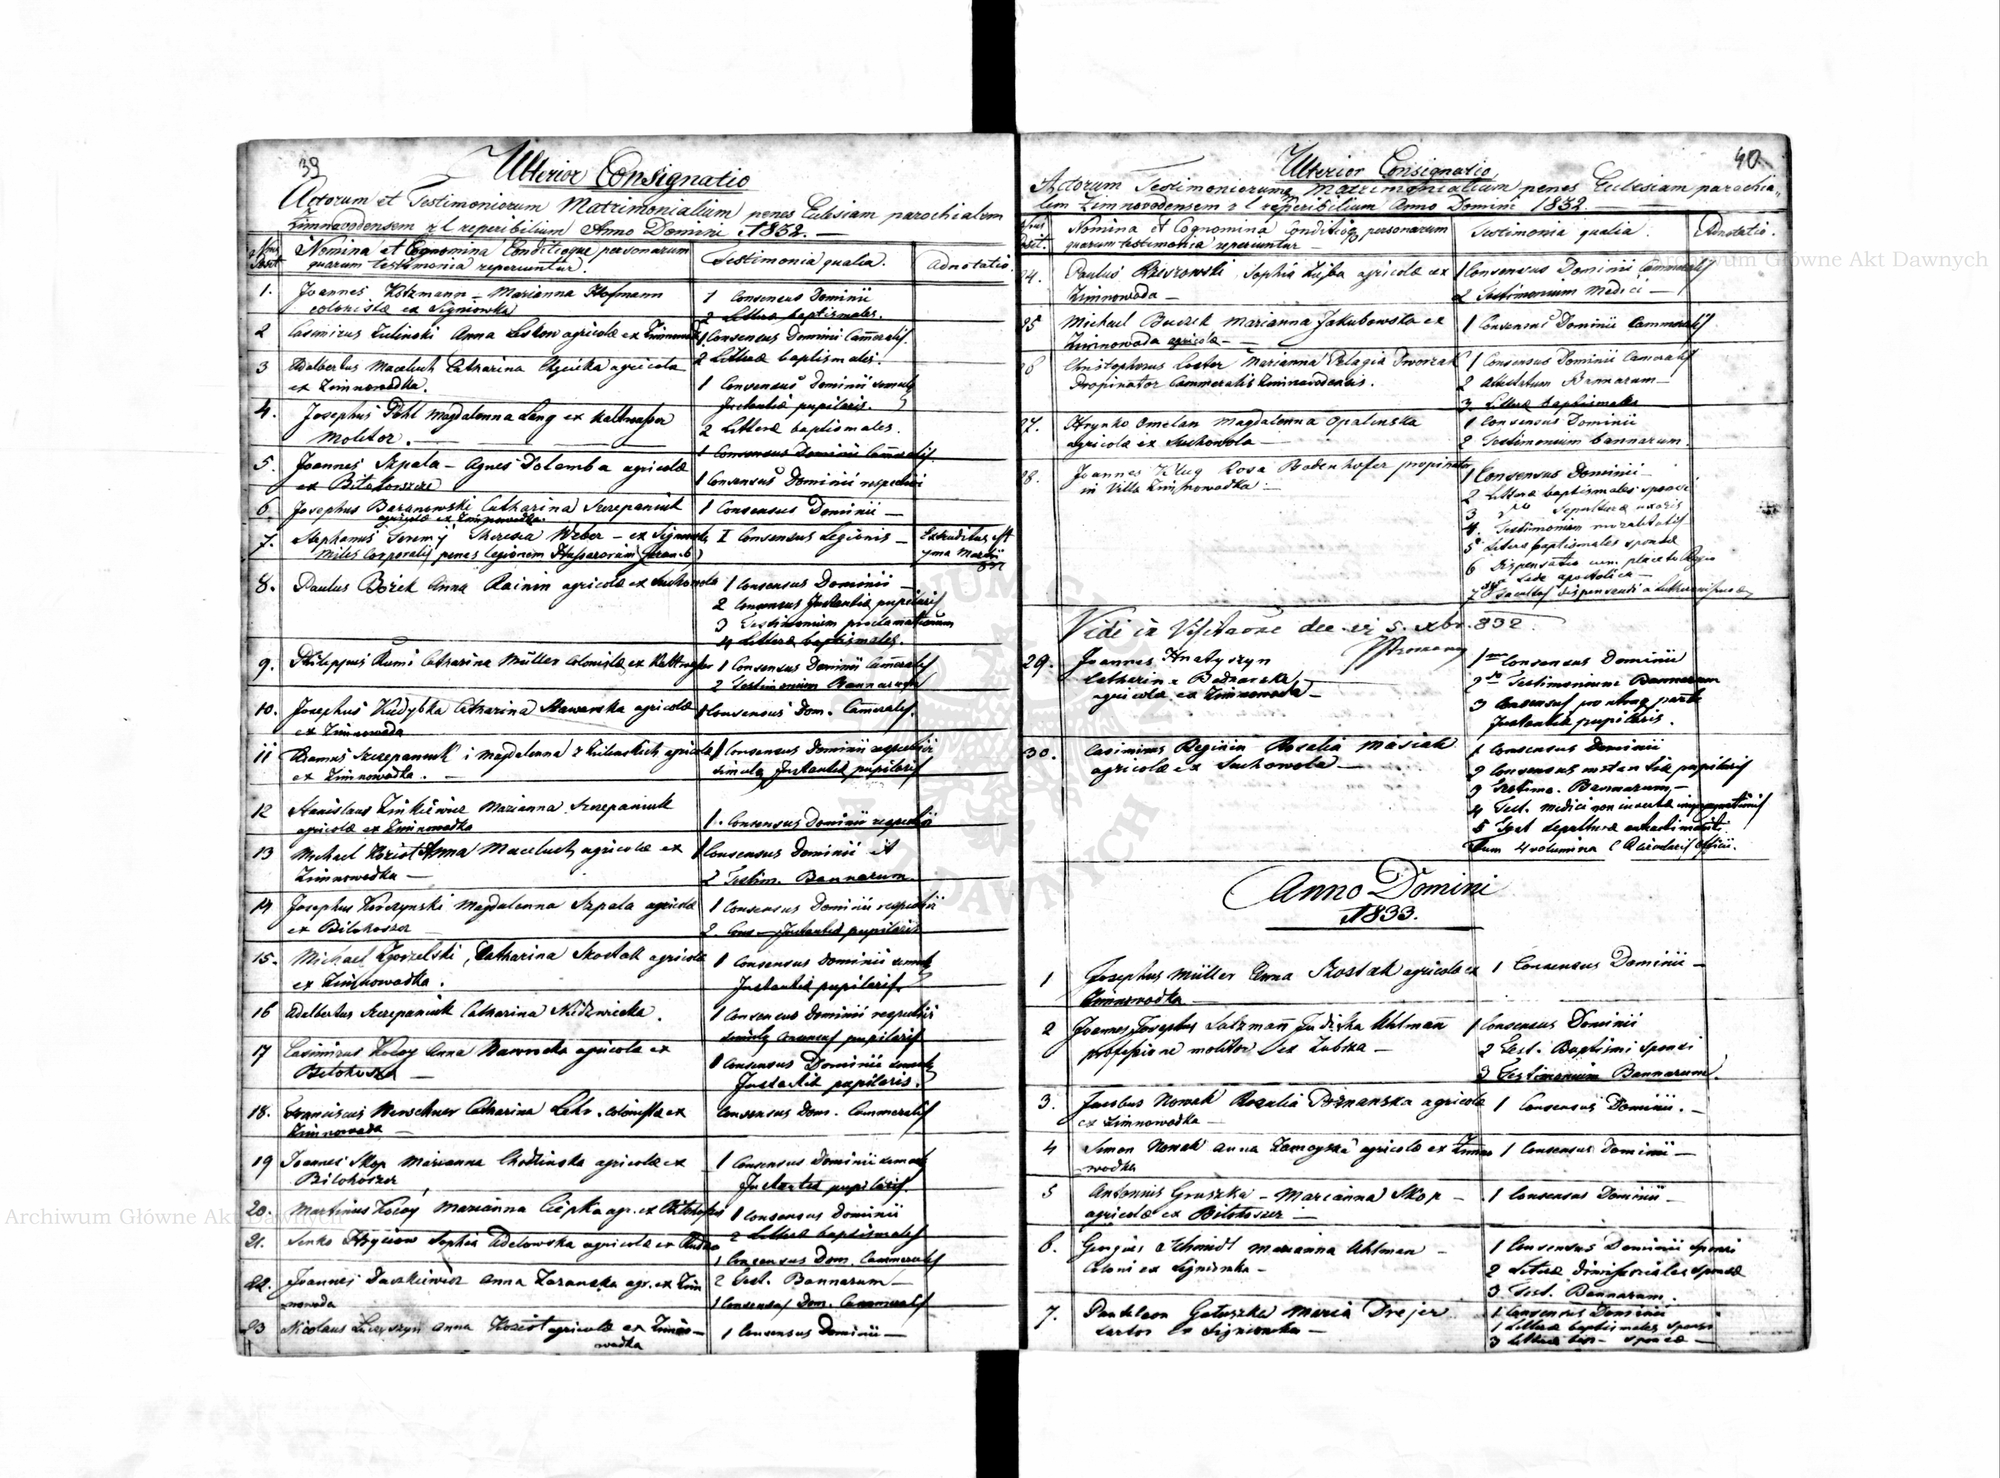 39
Ulterior Consignatio
Actorum et Testimoniorum Matrimonialium penes Eclesiam parochialem
Zimnovodensem r l reperibilium Anno Domini 1832. —
Nomina et Cognomina Conditioque personarum
quarum testimonia reperiuntur.
Testimonia qualia.
Adnotatio.
1. Joannes Kotzmann — Marianna Hofmann
colonistæ ex Signiowka
1 Consensus Dominii
2 Litteræ baptismales.
2 Casimirus Zulinski Anna Leskow agricolæ ex
1 Consensus Dominii Cameralis
2 Litteræ baptismales.
3 Adalbertus Maceluch Catharina agricolæ
ex Zimnowodka.
1 Consensus Dominii simulq
Instantiæ pupilaris.
4. Josephus Pohl Magdalenna Lang ex Kaltwasser
Molitor. —
2 Litteræ baptismales.
1 Consensus Dominii Cameralis
5. Joannes Szpala — Agnes Dolemba agricolæ
ex Bilohorszcze
1 Consensus Dominii respectivi
6. Josephus Baranowski Catharina Szczepaniuk
agricolæ ex Zimnowodka.
1 Consensus Dominii —
7. Stephanus Jeremy Theresia Weber — ex
Miles Corporalis penes Legionem Hussarorum
I Consensus Legionis —
Extraditus est
8. Paulus Borek Anna Rainin agricolæ ex Suchowola
1 Consensus Dominii —
2 Consensus Instantiæ pupilaris
3 Testimonium proclamationum
4 Litteræ baptismales.
9. Philippus Rumi Catharina Müller Colonistæ ex Kaltwasser
1 Consensus Dominii Cameralis
2 Testimonium Bannarum
10. Josephus Kudybka Catharina Stawarska agricolæ
ex Zimnowoda
1 Consensus Dom. Cameralis.
11 Adamus Szczepaniuk i Magdalenna z Zulinskich agricolæ
ex Zimnowodka. —
1 Consensus Dominii respectivi
simulq Instantiæ pupilaris
12 Stanislaus Zinkiewicz Marianna Szczepaniuk
agricolæ ex Zimnowodka
1. Consensus Dominii respectivi
13 Michael Koziot Anna Maceluch agricolæ ex
Zimnowodka —
1 Consensus Dominii et
2 Testim. Bannarum
14 Josephus Korczynski Magdalenna Szpala agricolæ
ex Bilohoszcz
1 Consensus Dominii respectivi
2. Cons — Instantiæ pupilaris
15. Michael Zgorzelski, Catharina Skostak agricolæ
ex Zimnowodka.
1 Consensus Dominii simulq
Instantiæ pupilaris.
16 Adalbertus Szczepaniuk Catharina Nidzwiecka.
1 Consensus Dominii respectivi
simulq Consensus pupilaris
17 Casimirus Kocoy Anna Bawrocka agricolæ ex
Bilohoszcz —
1 Consensus Dominii simulq
Instantiæ pupilaris.
18. Franciscus Menschner Catharina Lehr. colonistæ ex
Zimnowoda —
Consensus Dom. Cammeralis
19 Joannes Skop Marianna Chodlinska agricolæ ex
Bilohoszcz
1 Consensus Dominii simulq
Instantiæ pupilaris.
20. Martinus Kocoy Marianna Ciepka agr. ex
1 Consensus Dominii
2 Litteræ baptismales
21. Senko Hryciow Sophia Adelowska agricolæ ex Rudno
1 Consensus Dom. Cammeralis
22. Joannes Daszkiewicz Anna Zaranska agr. ex Zim
nowoda
2 Test. Bannarum —
1 Consensus Dom. Cammeralis
23 Nicolaus Anna Koziot agricolæ ex Zimno —
wodka
1 Consensus Dominii —
40
Ulterior Consignatio
Actorum Testimoniorumq Matrimonialium penes Eclesiam parochia-
lem Zimnovodensem r l reperibilium Anno Domini 1832. —
Nomina et Cognomina Conditioq personarum
quarum testimonia reperiuntur
Testimonia qualia.
Adnotatio.
24. Paulus Rzeszowski Sophia agricolæ ex
Zimnowoda —
1 Consensus Dominii Cammeralis
2 Testimonium Medici —
25 Michael Buczek Marianna Jakubowska ex
Zimnowoda agricolæ —
1 Consensus Dominii Cammeralis
26 Christophorus Lester Marianna Pelagia Dworzak
Propinator Cammeralis Zimnovodensis.
1 Consensus Dominii Cameralis
2 Attestatum Bannarum —
3. Litteræ baptismales
27. Hrynko Omelan Magdalenna Opalinska
agricolæ ex Suchowola —
1 Consensus Dominii
2 Testimonium bannarum
28. Joannes Klug Rosa Bodenhofer propinator
in Villa Zimnowodka —
1 Consensus Dominii —
2 Litteræ baptismales sponsi
3 Sepulturæ uxoris
4. Testimonium moralitatis
5 Literæ baptismales sponsæ
6 Dispensatio cum placeto Regio
Sede apostolica —
7 Facultas dispensandi a
Vidi in Visitaõne
29. Joannes Hnatyszyn
Catharina Bednarska,
agricolæ ex Zimnowoda —
1 Consensus Dominii
2 Testimonium Bannarum
3 Consensus pro utraq parte
Instantiæ pupilaris.
30. Casimirus Reginin Rosalia Masiak
agricolæ ex Suchowola —
1 Consensus Dominii
2 Consensus instantiæ pupilaris
3 Testimo. Bannarum, —
4 Test. medici non
5 Test sepulturæ
Sum 4 volumina
Anno Domini
1833.
1 Josephus Müller Anna Szostak agricolæ ex
Zimnowodka —
1 Consensus Dominii —
2 Joannes Josephus Salzmañ Juditka Uhlmañ
professione molitor ex Zubrza —
1 Consensus Dominii
2 Test. Baptismi sponsi
3 Testimonium Bannarum.
3. Jacobus Nowak Rosalia Poznanska agricolæ
ex Zimnowodka —
1 Consensus Dominii. —
4 Simon Nowak Anna Zamoyska agricolæ ex Zimno
wodka
1 Consensus Dominii —
5 Antonius Gruszka — Marianna Skop —
agricolæ ex Bilohoszcz —
1 Consensus Dominii —
6. Georgius Schmidt Marianna Uhlman —
Coloni ex Signiowka —
1 Consensus Dominii sponsi
2 Literæ dimissoriales sponsæ
3 Test. Bannarum.
7. Pantaleon Gatuszka Maria Drejer
sartor ex Signiowka —
1 Consensus Dominii
1 Litteræ baptismales sponsi
3 Litteræ bap — sponsæ —
Archiwum Główne Akt Dawnych
Archiwum Główne Akt Dawnych